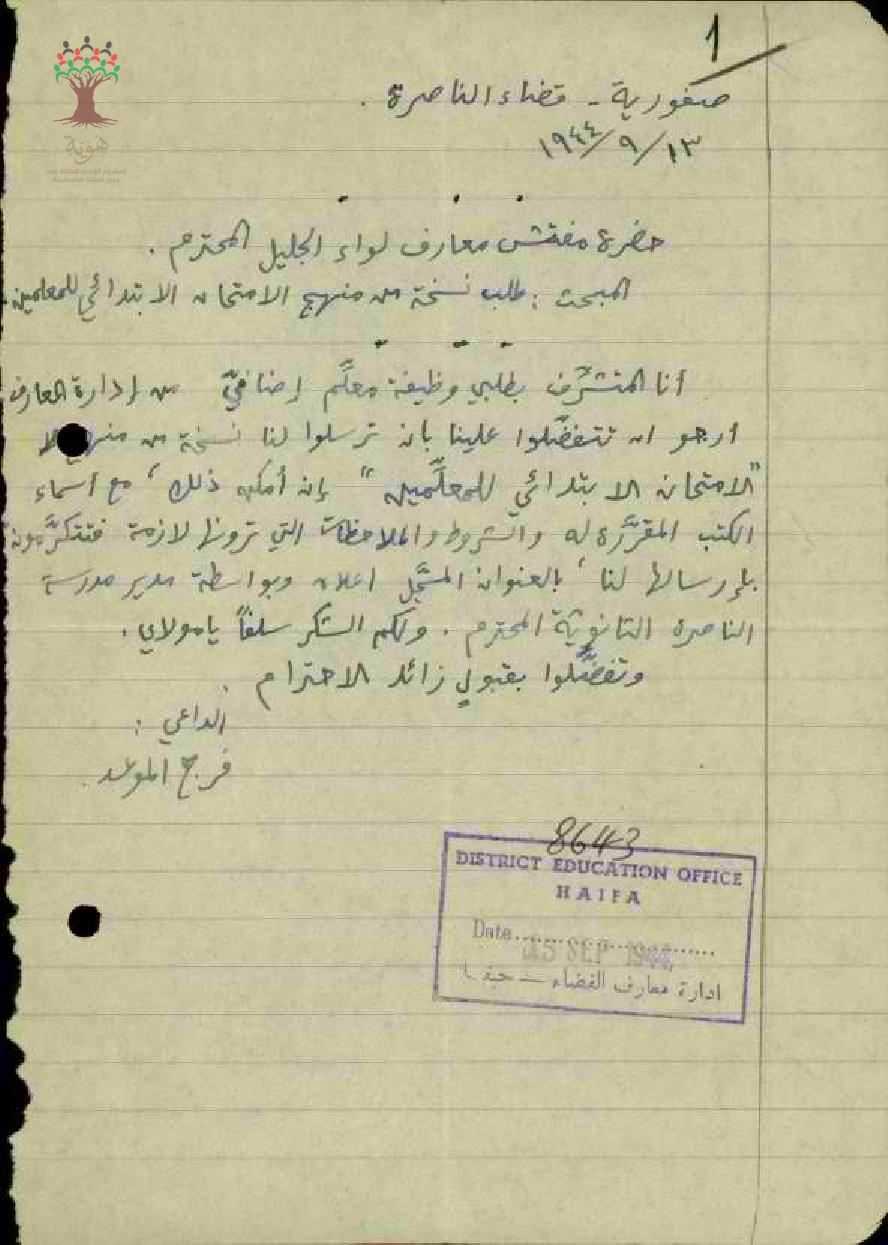 1
صفورية - قضاء الناصرة .
١٣/٩/١٩٤٤
حضرة مفتش معارف لواء الجليل المحترم .
المبحث : طلب نسخة من منهج الامتحان الابتدائي للمعلمين .
أنا المتشرَّف بطلبي وظيفة معلَّم إضافيّ من إدارة المعارف
أرجو ان تتفضَّلوا علينا بان ترسلوا لنا نسخة من
"الامتحان الابتدائي للمعلَّمين" إن أمكن ذلك ، مع أسماء
الكتب المقرَّرة له والشروط والملاحظات التي ترونها لازمة فتتكرَّمون
بإرسالها لنا ، بالعنوان المسجَّل اعلاه وبواسطة مدير مدرسة
الناصرة الثانويّة المحترم . ولكم الشكر سلفاً يا مولاي .
وتفضَّلوا بقبول زائد الاحترام
الداعي :
فرج الموعد .
8643
DISTRICT EDUCATION OFFICE
HAIFA
Date
15 SEP 1944
ادارة معارف القضاء — حيفا
هوية